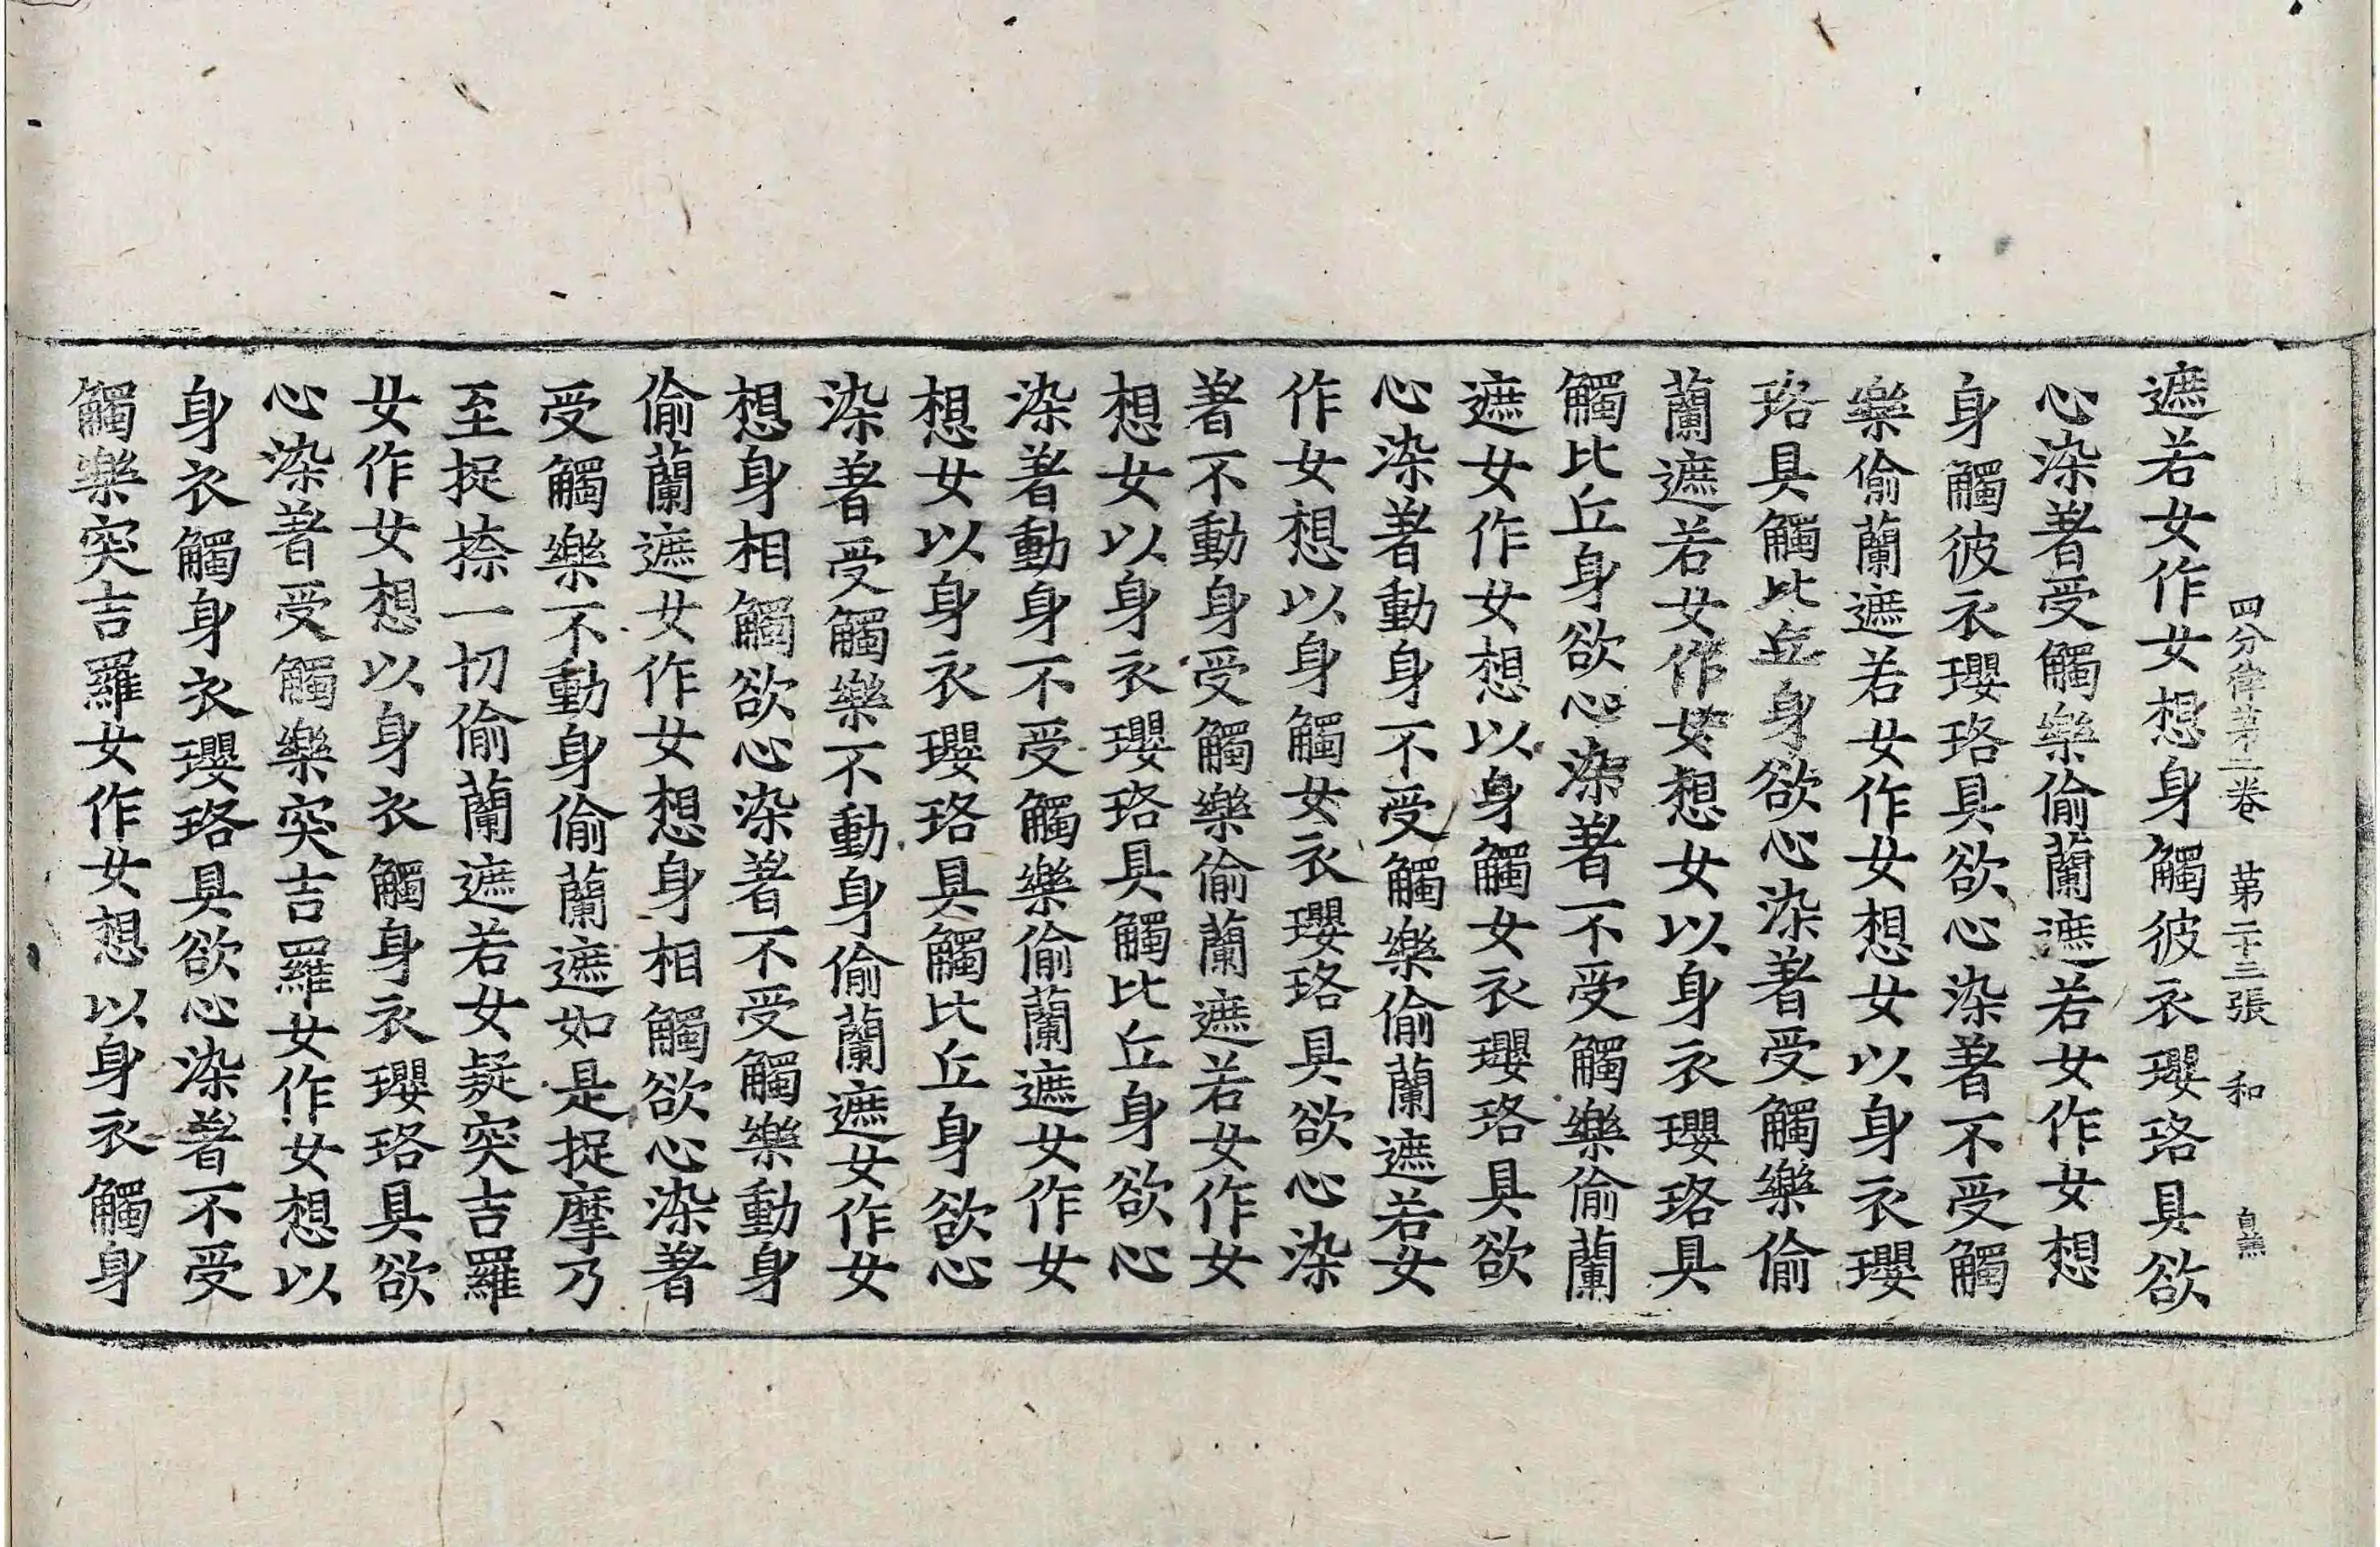 四分律第二卷 第二十三張 和
遮若女作女想身觸彼衣瓔珞具欲
心染著受觸樂偷蘭遮若女作女想
身觸彼衣瓔珞具欲心染著不受觸
樂偷蘭遮若女作女想女以身衣瓔
珞具觸比丘身欲心染著受觸樂偷
蘭遮若女作女想女以身衣瓔珞具
觸比丘身欲心染著不受觸樂偷蘭
遮女作女想以身觸女衣瓔珞具欲
心染著動身不受觸樂偷蘭遮若女
作女想以身觸女衣瓔珞具欲心染
著不動身受觸樂偷蘭遮若女作女
想女以身衣瓔珞具觸比丘身欲心
染著動身不受觸樂偷蘭遮女作女
想女以身衣瓔珞具觸比丘身欲心
染著受觸樂不動身偷蘭遮女作女
想身相觸欲心染著不受觸樂動身
偷蘭遮女作女想身相觸欲心染著
受觸樂不動身偷蘭遮如是捉摩乃
至捉捺一切偷蘭遮若女疑突吉羅
女作女想以身衣觸身衣瓔珞具欲
心染著受觸樂突吉羅女作女想以
身衣觸身衣瓔珞具欲心染著不受
觸樂突吉羅女作女想以身衣觸身